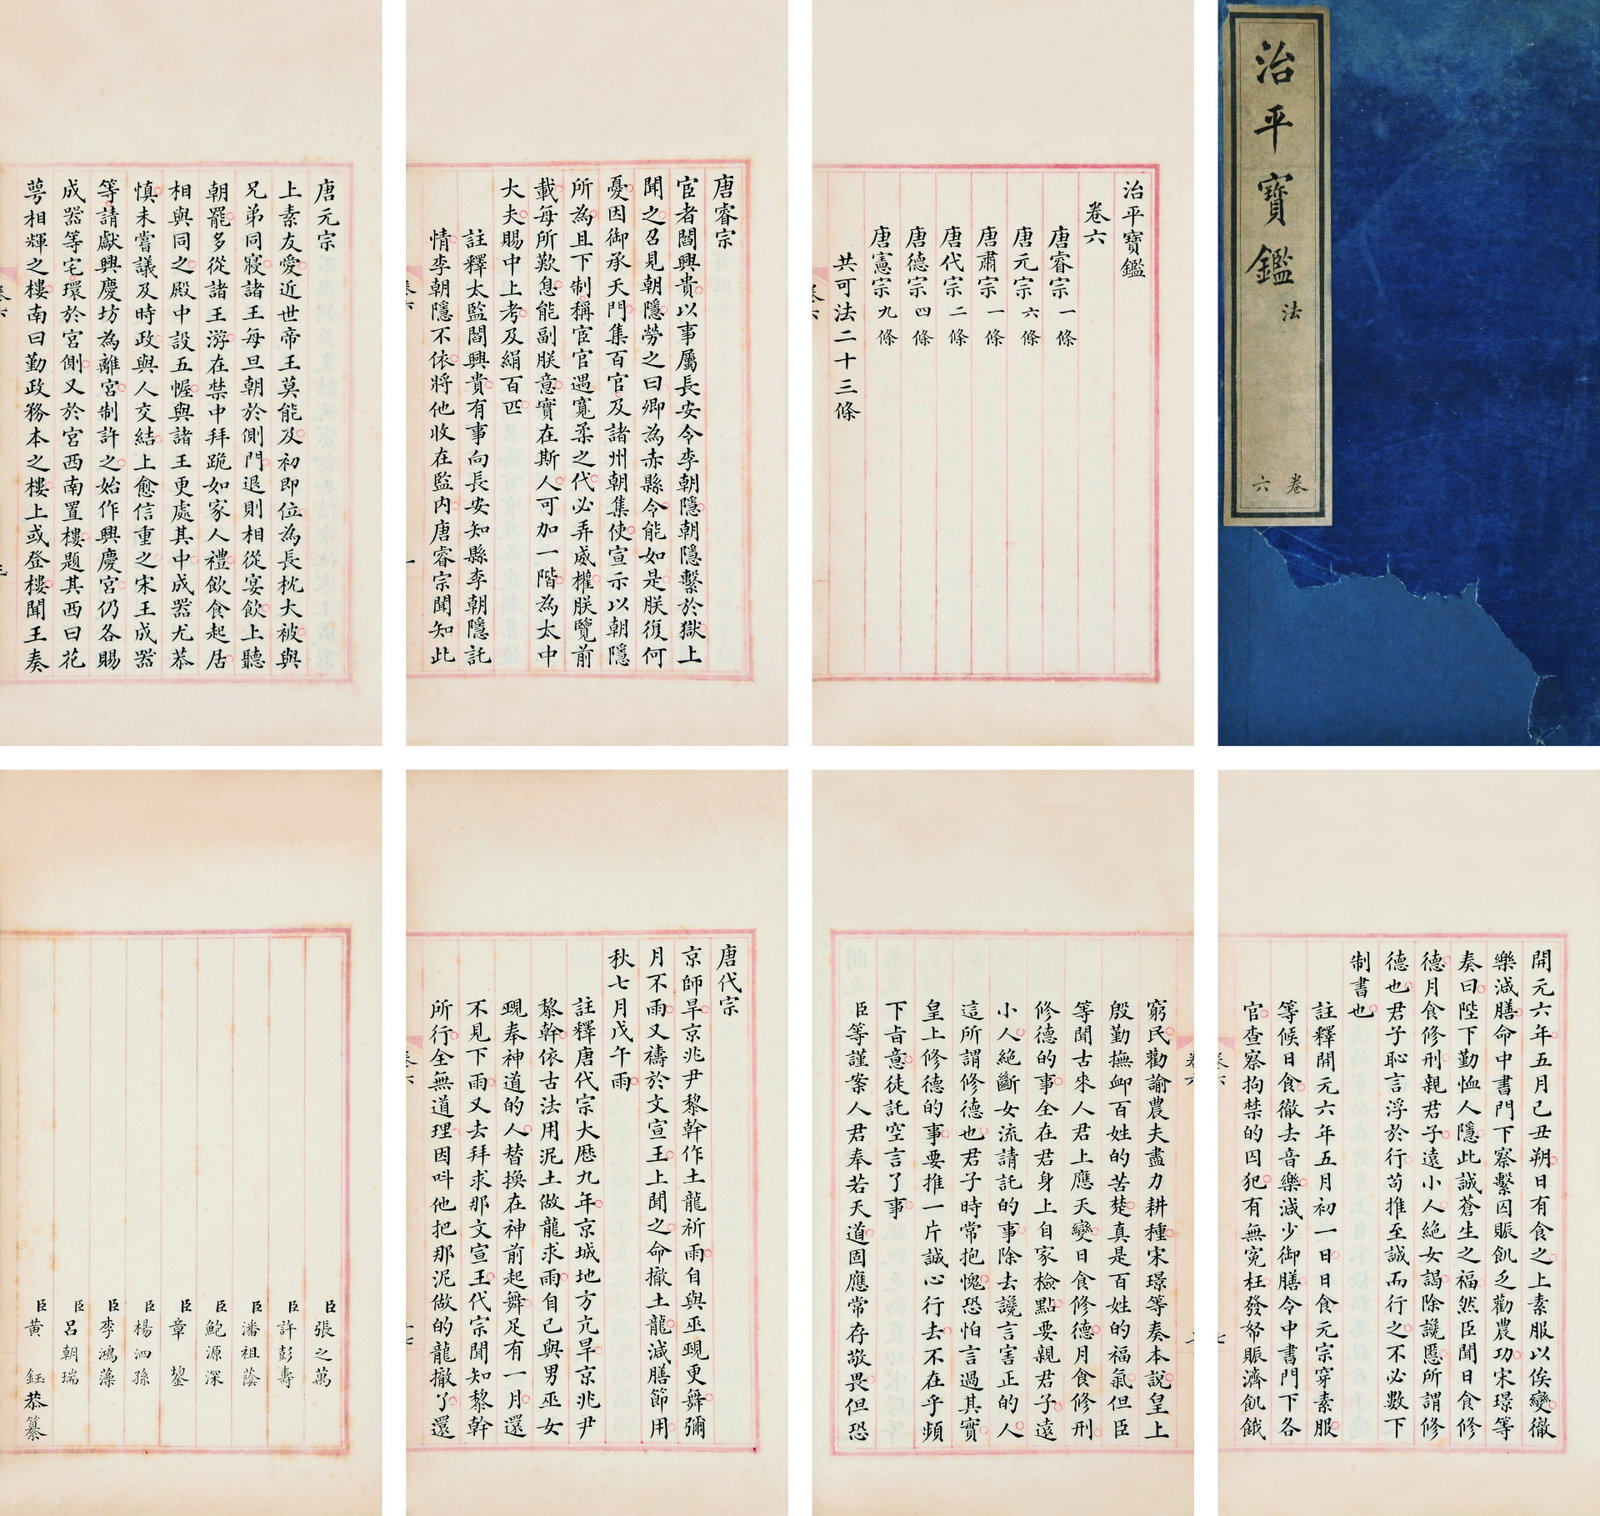 治平寶鑑 法
卷六
治平寶鑑
卷六
唐睿宗一條
唐元宗六條
唐肅宗一條
唐代宗二條
唐德宗四條
唐憲宗九條
共可法二十三條
唐睿宗
宦者閻興貴以事屬長安令李朝隱朝隱繫於獄上
聞之召見朝隱勞之曰卿為赤縣令能如是朕復何
憂因御承天門集百官及諸州朝集使宣示以朝隱
所為且下制稱宦官遇寬柔之代必弄威權朕覽前
載每所歎息能副朕意實在斯人可加一階為太中
大夫賜中上考及絹百匹
註釋太監閻興貴有事向長安知縣李朝隱託
情李朝隱不依將他收在監內唐睿宗聞知此
唐元宗
上素友愛近世帝王莫能及初即位為長枕大被與
兄弟同寢諸王每旦朝於側門退則相從宴飲上聽
朝罷多從諸王游在禁中拜跪如家人禮飲食起居
相與同之殿中設五幄與諸王更處其中成器尤恭
慎未嘗議及時政與人交結上愈信重之宋王成器
等請獻興慶坊為離宮制許之始作興慶宮仍各賜
成器等宅環於宮側又於宮西南置樓題其西曰花
萼相輝之樓南曰勤政務本之樓上或登樓聞王奏
開元六年五月己丑朔日有食之上素服以俟變徹
樂減膳命中書門下察繫囚賑飢乏勸農功宋璟等
奏曰陛下勤恤人隱此誠蒼生之福然臣聞日食修
德月食修刑親君子遠小人絕女謁除讒慝所謂修
德也君子恥言浮於行苟推至誠而行之不必數下
制書也
註釋開元六年五月初一日日食元宗穿素服
等候日食徹去音樂減少御膳令中書門下各
官查察拘禁的囚犯有無冤枉發帑賑濟飢餓
窮民勸諭農夫盡力耕種宋璟等奏本說皇上
殷勤撫卹百姓的苦楚真是百姓的福氣但臣
等聞古來人君上應天變日食修德月食修刑
修德的事全在君身上自家檢點要親君子遠
小人絕斷女流請託的事除去讒言害正的人
這所謂修德也君子時常抱愧恐怕言過其實
皇上修德的事要推一片誠心行去不在乎頻
下旨意徒託空言了事
臣等謹案人君奉若天道固應常存敬畏但恐
唐代宗
京師旱京兆尹黎幹作土龍祈雨自與巫覡更舞彌
月不雨又禱於文宣王上聞之命撤土龍減膳節用
秋七月戊午雨
註釋唐代宗大歷九年京城地方亢旱京兆尹
黎幹依古法用泥土做龍求雨自己與男巫女
覡奉神道的人替換在神前起舞足有一月還
不見下雨又去拜求那文宣王代宗聞知黎幹
所行全無道理因叫他把那泥做的龍撤了還
臣張之萬
臣許彭壽
臣潘祖蔭
臣鮑源深
臣章鋆
臣楊泗孫
臣李鴻藻
臣呂朝瑞
臣黃鈺恭纂